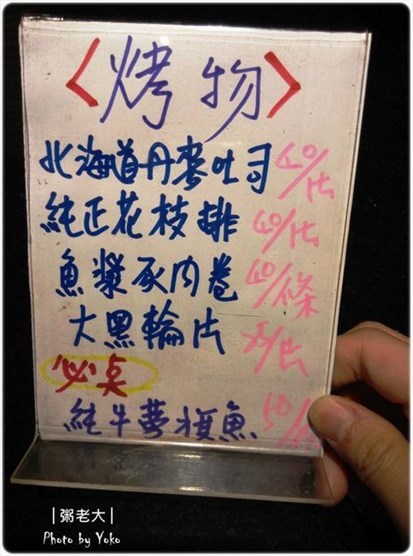 〈烤物〉
北海道丹麥吐司 40/片
純正花枝排 40/片
魚漿豕肉卷 40/條
大黑輪片 /片
必点
純牛蒡旗魚 50/
|粥老大|
Photo by Yoko